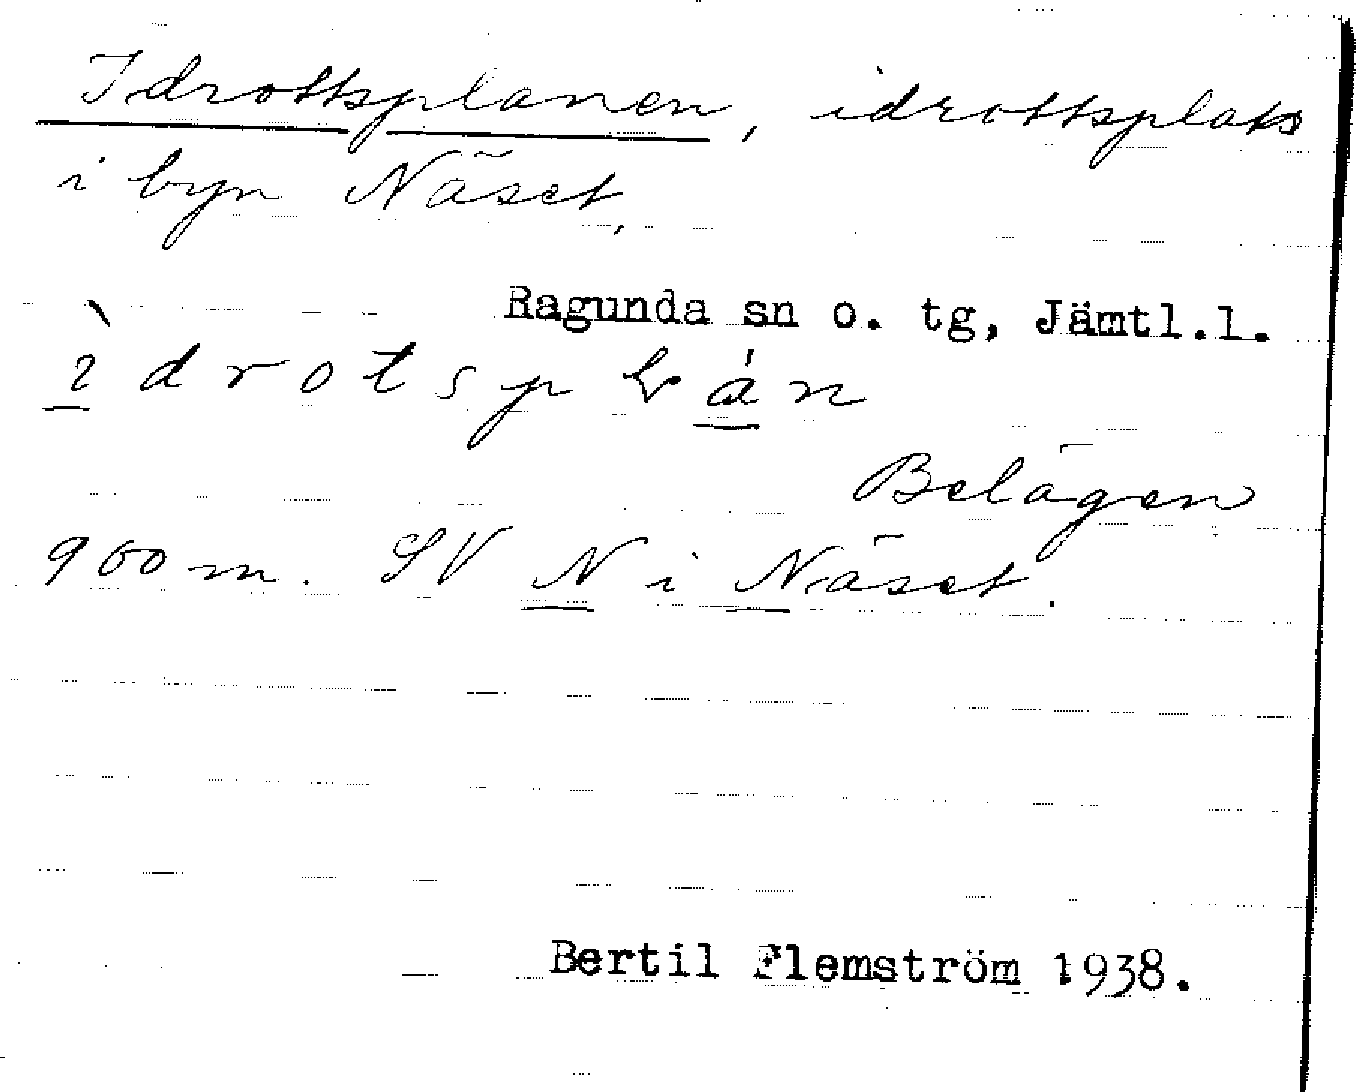 Idrottsplanen, idrottsplats
i byn Näset,
Ragunda sn o. tg, Jämtl.l.
Belägen
900 m. SV N i Näset.
Bertil Flemström 1938.